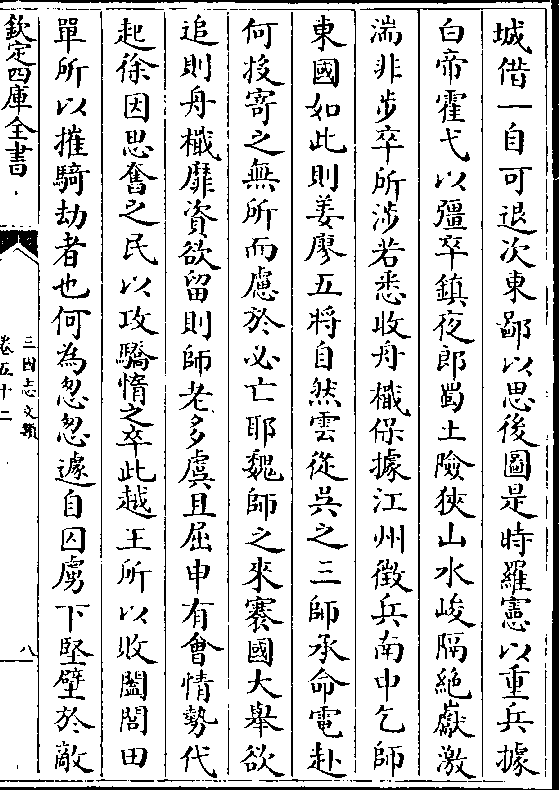 城借一自可退次東鄙以思後圖是時羅憲以重兵據
白帝霍弋以彊卒鎮夜郎蜀土險狹山水峻隔絶巘激
湍非步卒所涉若悉收舟檝保據江州徵兵南中乞師
東國如此則姜廖五將自然雲從吳之三師承命電赴
何投寄之無所而慮於必亡耶魏師之來褰國大舉欲
追則舟檝靡資欲留則師老多虞且屈申有會情勢代
起徐因思奮之民以攻驕惰之卒此越王所以敗闔閭田
單所以摧騎劫者也何為怱怱遽自囚虜下堅壁於敵
欽定四庫全書
三國志文類
卷五十二
八